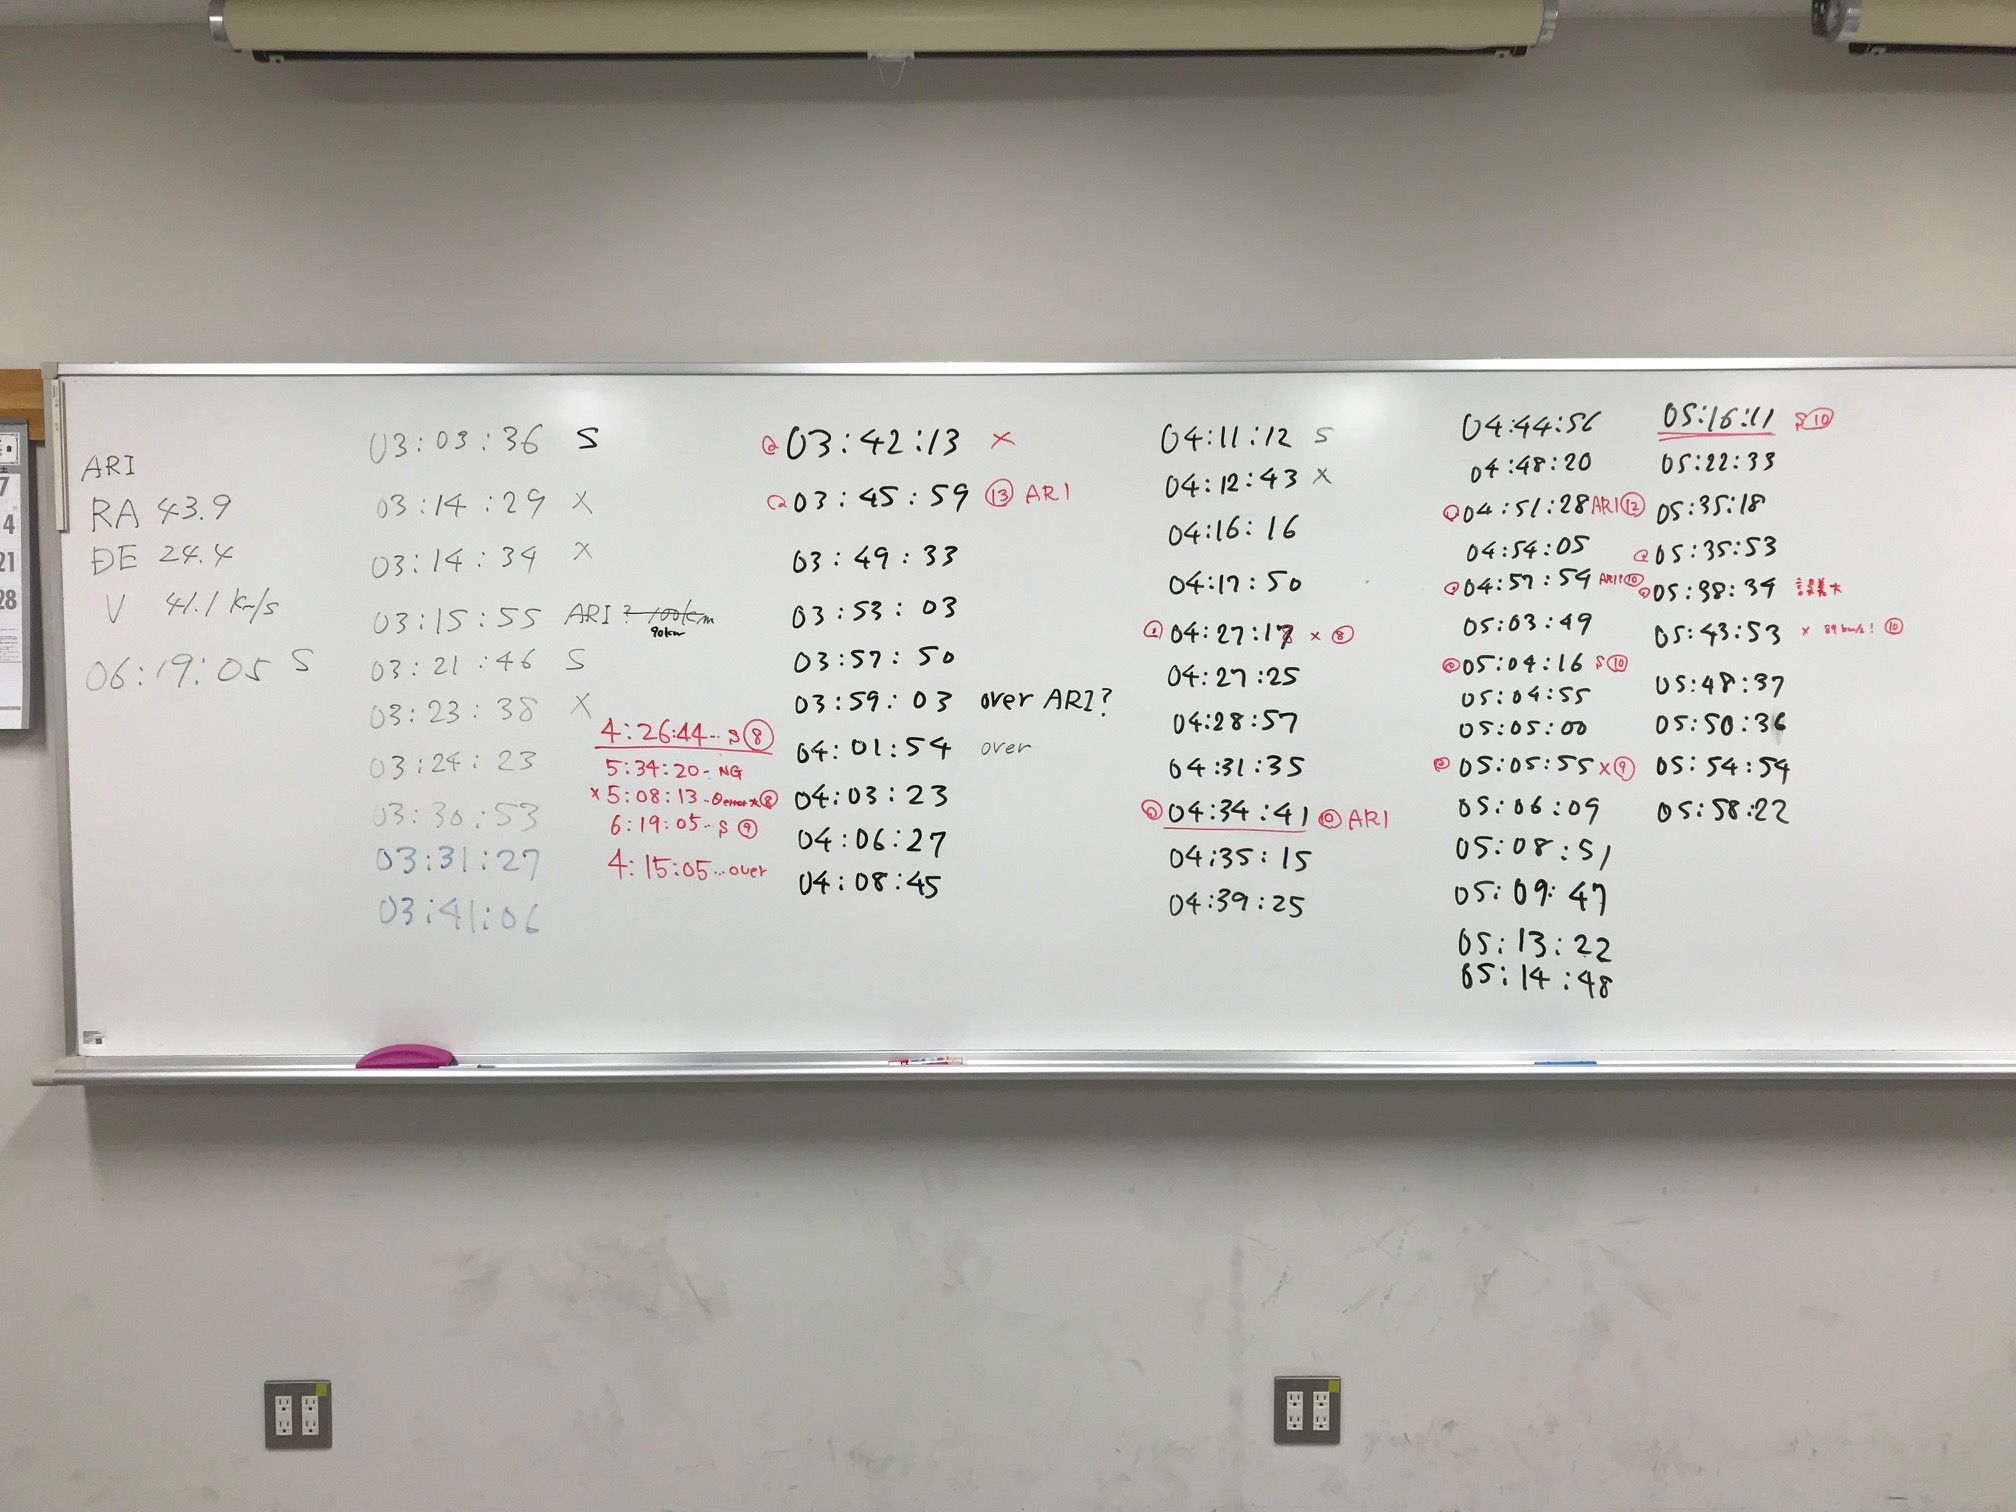 7
14
21
28
ARI
RA 43.9
DE 24.4
V 41.1 km/s
06:19:05 S
03:03:36 S
03:14:29 ×
03:14:34 ×
03:15:55 ARI ? 100km
90km
03:21:46 S
03:23:38 ×
03:24:23
03:30:53
03:31:27
03:41:06
4:26:44... S ⑧
5:34:20 - NG
× 5:08:13 - θerror大 ⑧
6:19:05 - S ⑨
4:15:05... over
03:42:13 ×
03:45:59 ⑬ ARI
03:49:33
03:53:03
03:57:50
03:59:03 over ARI?
04:01:54 over
04:03:23
04:06:27
04:08:45
04:11:12 S
04:12:43 ×
04:16:16
04:17:50
04:27:17 × ⑧
04:27:25
04:28:57
04:31:35
04:34:41 ⑩ ARI
04:35:15
04:39:25
04:44:56
04:48:20
04:51:28 ARI ⑫
04:54:05
04:57:59 ARI? ⑩
05:03:49
05:04:16 S ⑩
05:04:55
05:05:00
05:05:55 × ⑨
05:06:09
05:08:51
05:09:47
05:13:22
05:14:48
05:16:11 S ⑩
05:22:33
05:35:18
05:35:53
05:38:39 誤差大
05:43:53 × 89 km/s! ⑩
05:48:37
05:50:36
05:54:54
05:58:22